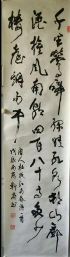 千里鶯啼綠映紅水村山郭
酒旗風南朝四百八十寺多少
樓臺煙雨中
唐人杜牧江南春詩一首